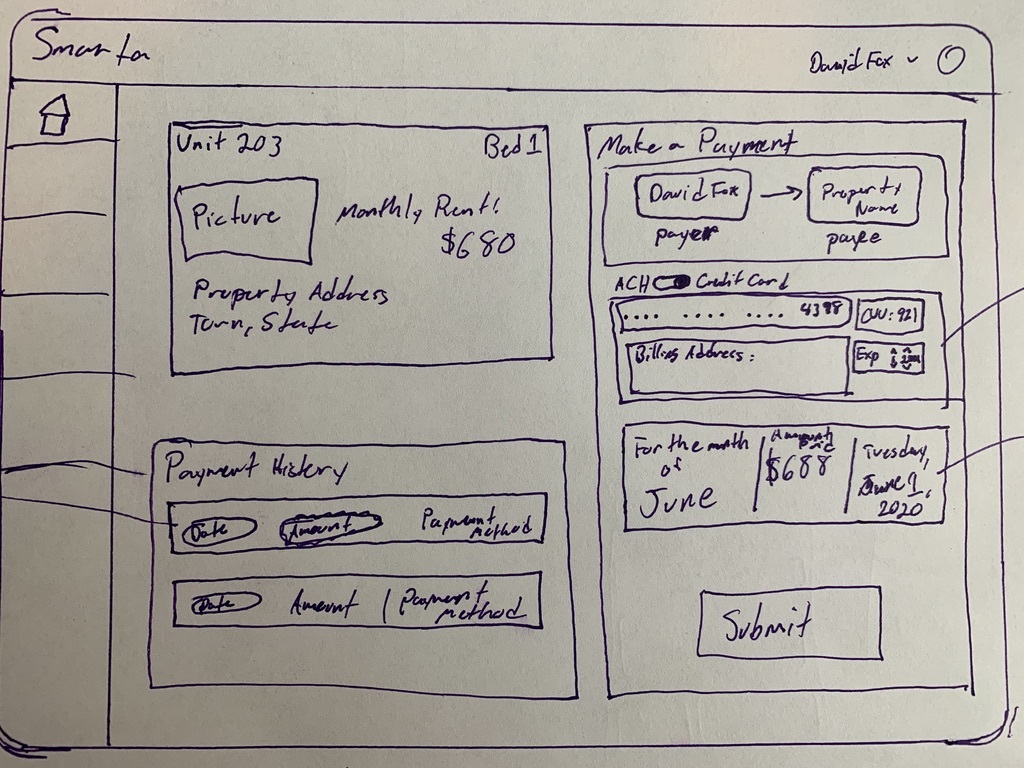 Smarta
David Fox
Unit 203
Bed 1
Picture
Monthly Rent!
$680
Property Address
Town, State
Payment History
Date Amount Payment
Method
Date Amount | Payment
Method
Make a Payment
David Fox → Property
Name
payer
payee
ACH Credit Card
.... .... .... 4388
CVV: 921
Billing Address:
Exp
For the month
of
June
Amount
Paid
$688
Tuesday,
June 1,
2020
Submit